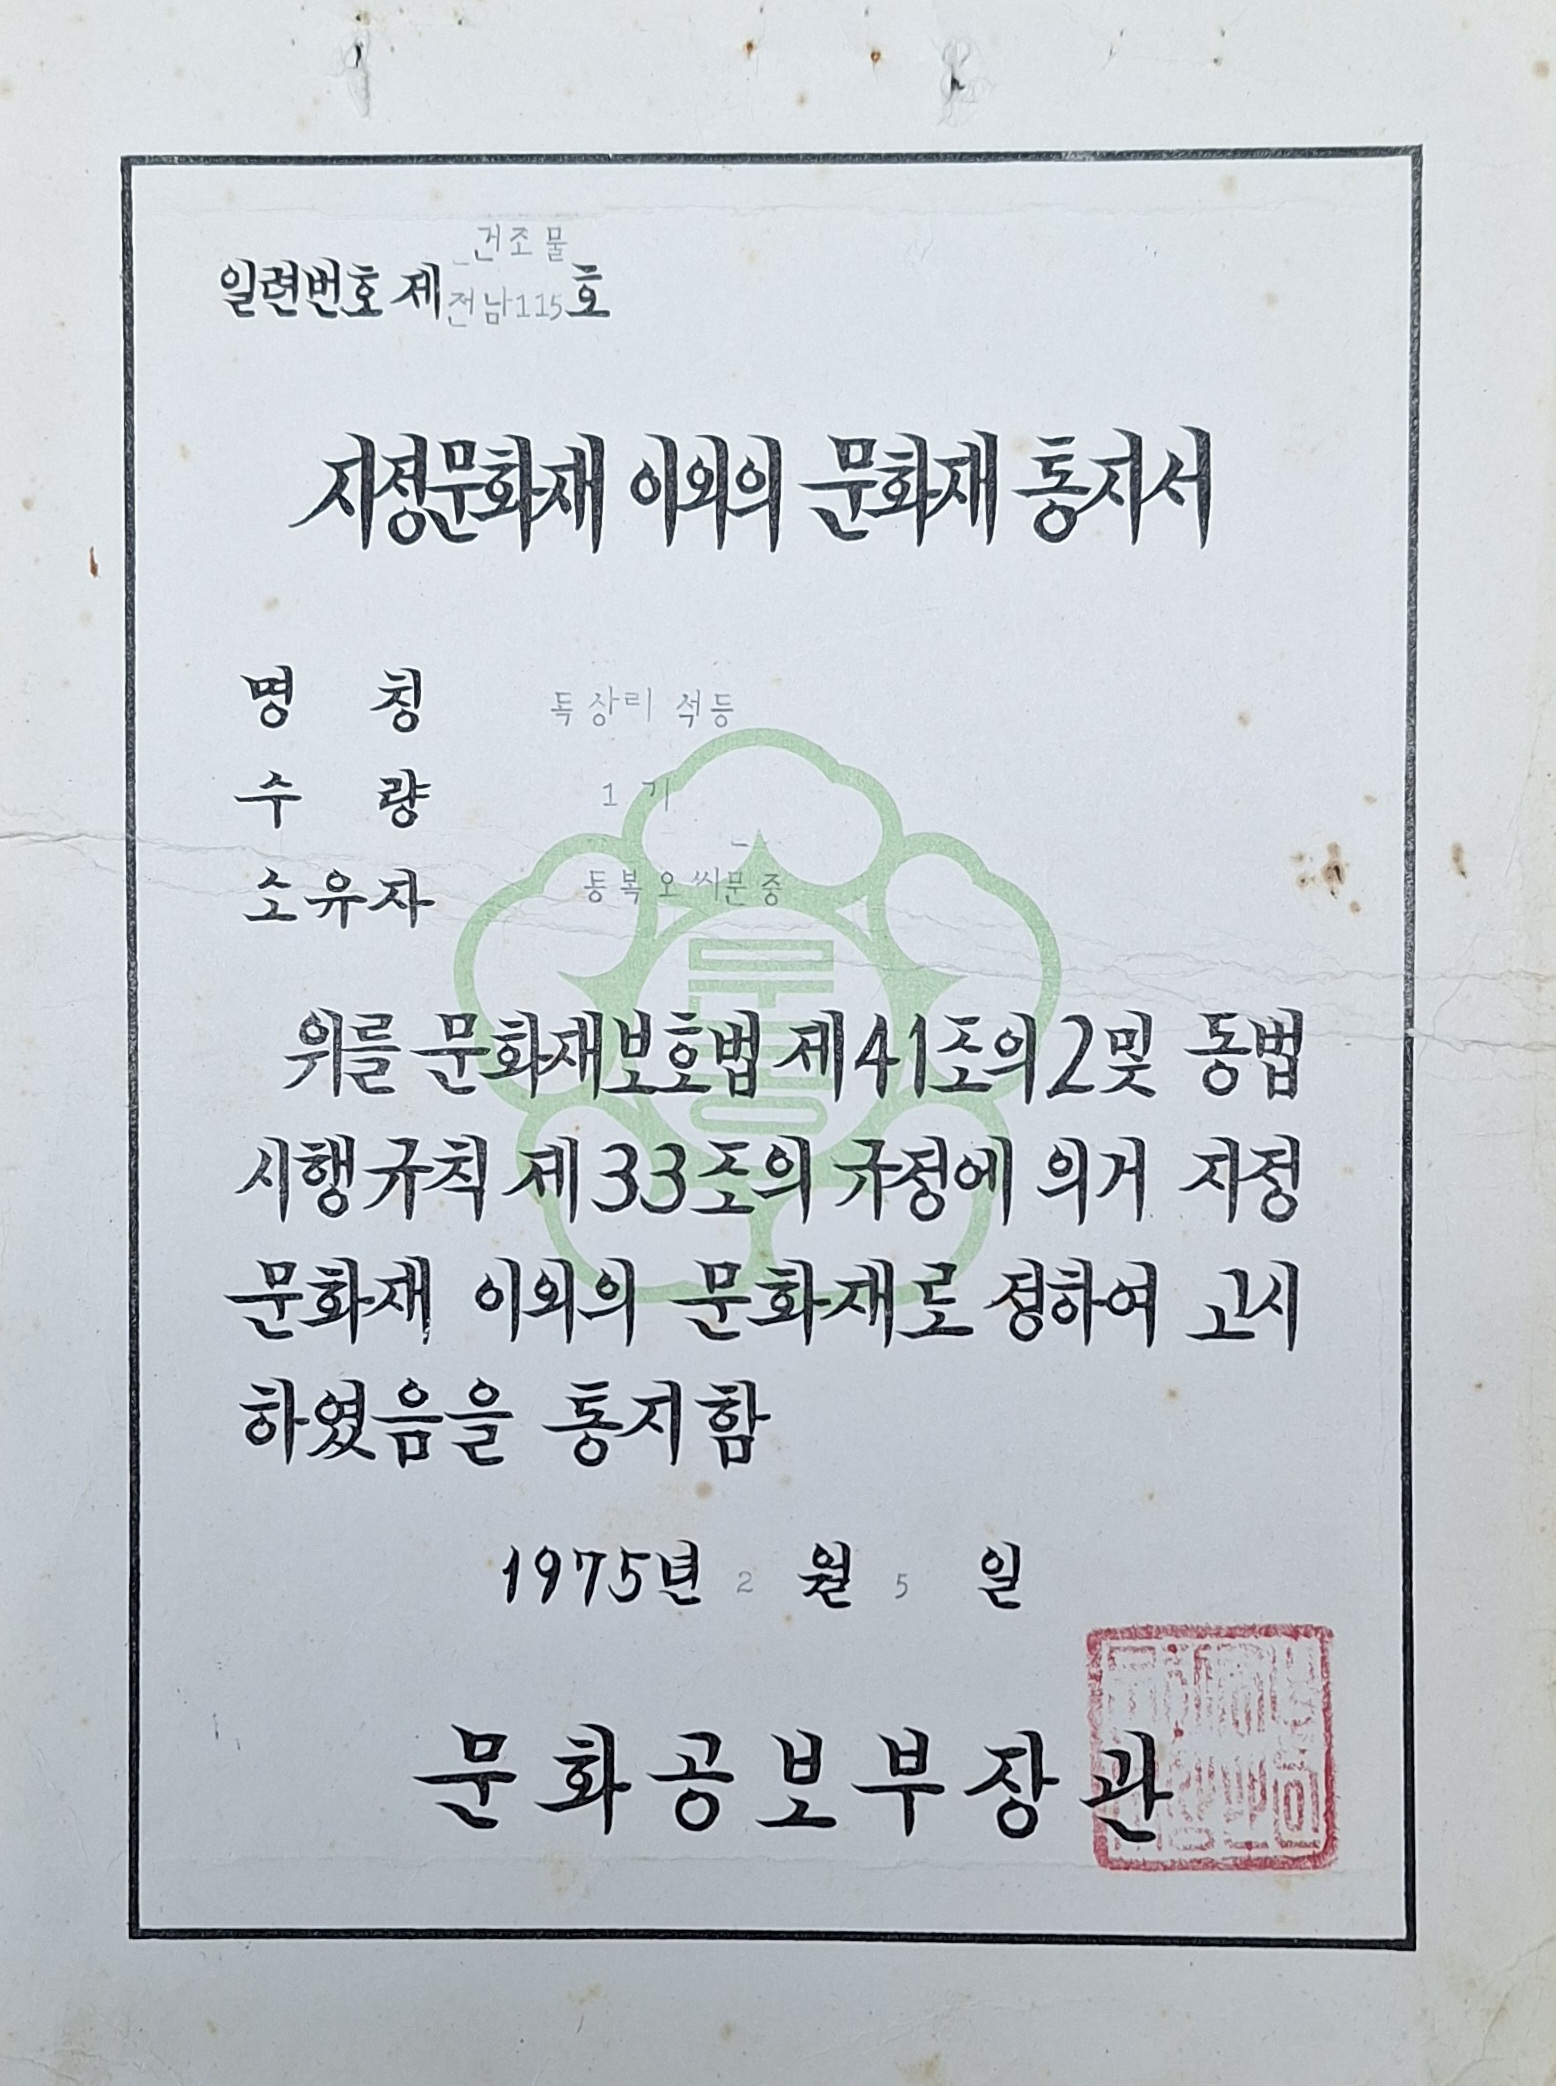 건조물
일련번호 제전남115호
지정문화재 이외의 문화재 통지서
명 칭 독상리 석등
수 량 1 기
소유자 동복오씨문중
위를 문화재보호법 제41조의2및 동법
시행규칙 제33조의 규정에 의거 지정
문화재 이외의 문화재로 정하여 고시
하였음을 통지함
1975년 2 월 5 일
문화공보부장관